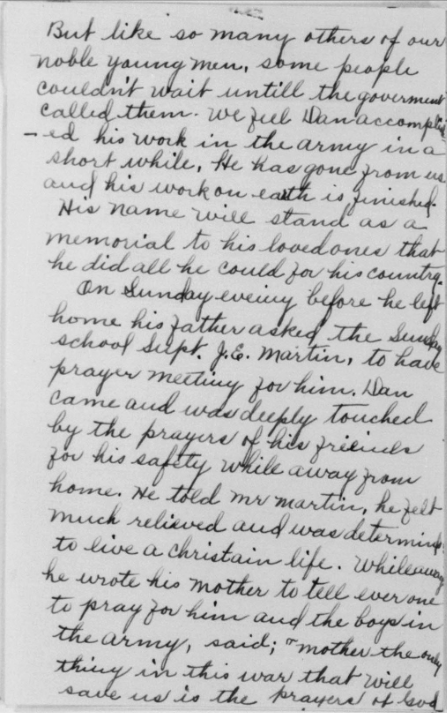 But like so many others of our
noble young men, some people
couldn't wait untill the goverment
called them. We feel Dan accomplish
- ed his work in the army in a
short while, He has gone from us
and his work on earth is finished.
His name will stand as a
memorial to his loved ones that
he did all he could for his country.
On Sunday eveing before he left
home his father asked the Sunday
school Supt. J.E. Martin, to have
prayer meeting for him. Dan
came and was deeply touched
by the prayers of his frieinds
for his safety while away from
home. He told mr martin, he felt
much relieved and was determind
to live a christain life. While away
he wrote his mother to tell ever one
to pray for him and the boys in
the army, said; "mother the only
thing in this war that will
save us is the prayers of God